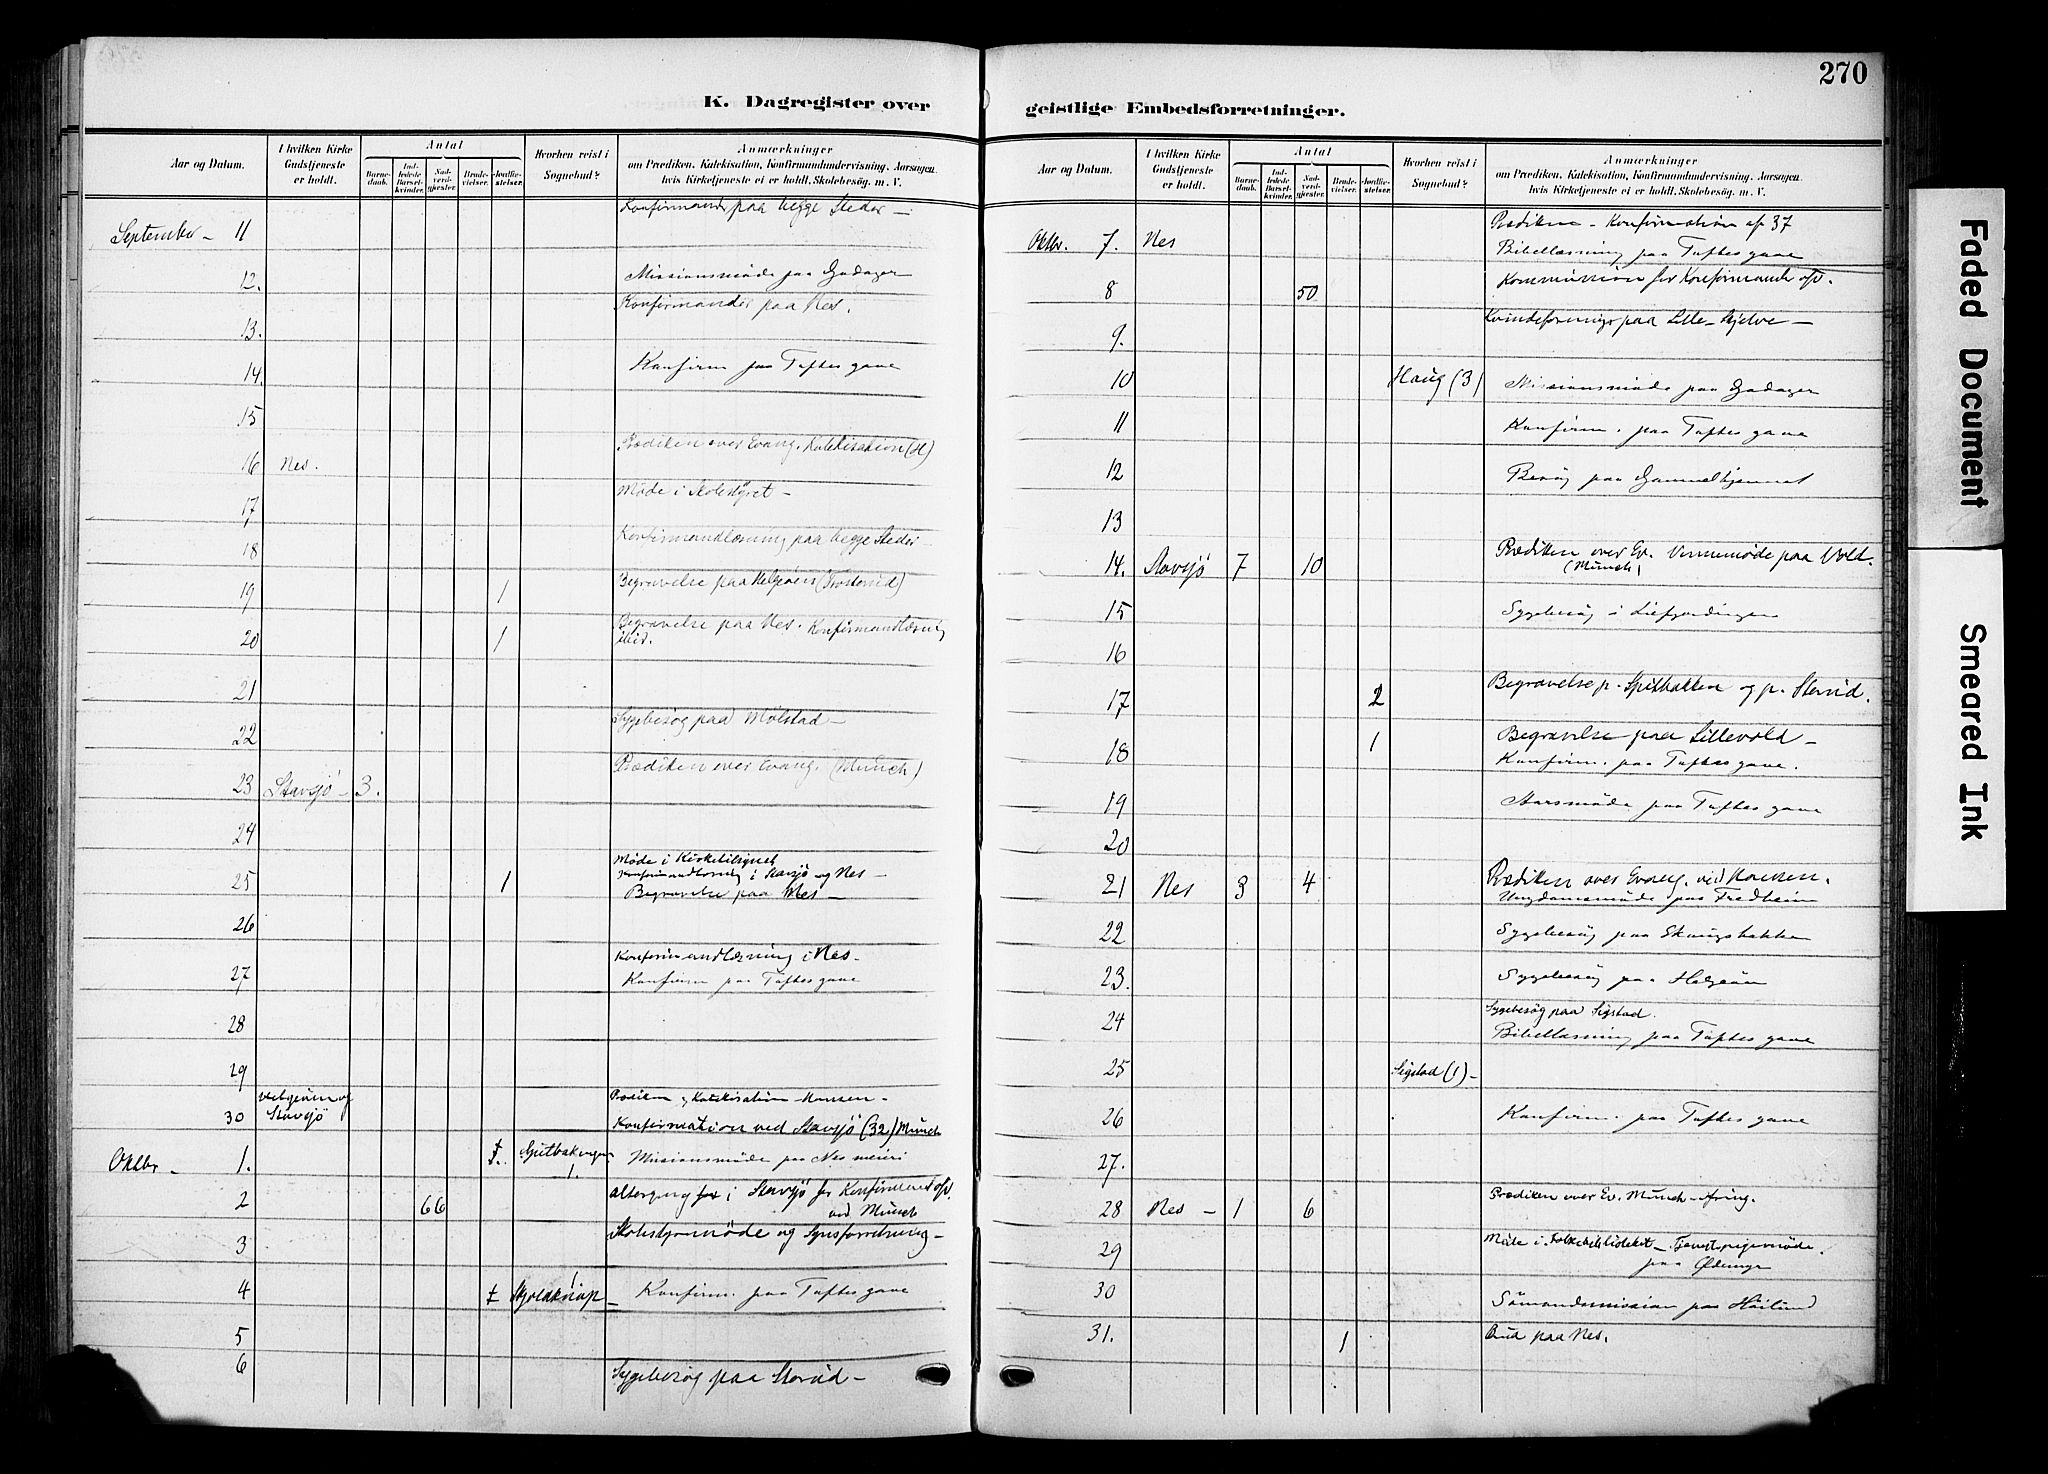 270
K. Dagregister over
geistlige Embedsforretninger.
Aar og Datum.
I hvilken Kirke Gudstjeneste er holdt.
Antal
Barnedaab.
Indledede Barselkvinder.
Nadverdgjester.
Brudevielser.
Jordfæstelser.
Hvorhen reist i Sognebud?
Anmærkninger
om Prædiken, Katekisation, Konfirmandundervisning, Aarsagen,
hvis Kirketjeneste ei er holdt, Skolebesög, m. V.
September - 11 Konfirmander paa begge Steder -
12. Missionsmøde paa Gadager
13. Konfirmander paa Nes.
14. Konfirm paa Toftes gave
15
16 Nes. Prædiken over Evang. Katekisation (H)
17 Møde i Skolestyret -
18 Konfirmandlæsning paa begge Steder -
19 1 Begravelse paa Helgøen
20 1 Begravelse paa Nes. Konfirmandlæsning
ibid.
21
22 Sygebesøg paa Mølstad -
23 Stavsjö - 3. Prædiken over Evang. (Munch)
24
25 1 Møde i Kirketilsynet
Konfirmandlæsning i Stavsjö og Nes -
Begravelse paa Nes -
26
27 Konfirmandlæsning i Nes -
Konfirm paa Toftes gave
28
29
30 Helgøen og Stavsjö Prædiken og Katekisation Hansen -
Konfirmation ved Stavsjö (32) Munch
Oktbr - 1. 1. Missionsmøde paa Nes meieri
2 66 altergang i Stavsjö for Konfirmerede
ved Munch
3 Skolestyremøde og Synsforretning -
4 Konfirm. paa Toftes gave
5
6 Sygebesøg paa Storud -
Aar og Datum.
I hvilken Kirke Gudstjeneste er holdt.
Antal
Barnedaab.
Indledede Barselkvinder.
Nadverdgjester.
Brudevielser.
Jordfæstelser.
Hvorhen reist i Sognebud?
Anmærkninger
om Prædiken, Katekisation, Konfirmandundervisning, Aarsagen,
hvis Kirketjeneste ei er holdt, Skolebesög, m. V.
Oktbr. 7. Nes Prædiken - Konfirmation af 37
Bibellæsning paa Toftes gave
8 50 Kommunion for Konfirmander
9. Kvindeforening paa Lille-Skjelve -
10 Haug (3) Missionsmøde paa Gadager
11 Konfirm. paa Toftes gave
12 Besøg paa Gammelkjernet
13
14. Stavsjö 7 10 Prædiken over Ev. Vennemøde paa Vold.
(Munch)
15 Sygebesøg i
16
17 2 Begravelse p. Spitbakken og p. Storud.
18 1 Begravelse paa Lillevold -
Konfirm. paa Toftes gave.
19 Aarsmøde paa Toftes gave
20
21 Nes 3 4 Prædiken over Evang. ved Hansen.
Ungdomsmøde paa Fredheim
22 Sygebesøg paa
23. Sygebesøg paa Helgøen
24 Sygebesøg paa Sigstad.
Bibellæsning paa Toftes gave
25 Sigstad (1) -
26 Konfirm. paa Toftes gave
27.
28 Nes - 1 6 Prædiken over Ev. Munch -
29 Møde i Folkebiblioteket -
paa
30 Sömandsmission paa Höilund
31. 1 Brud paa Nes.
Faded Document
Smeared Ink